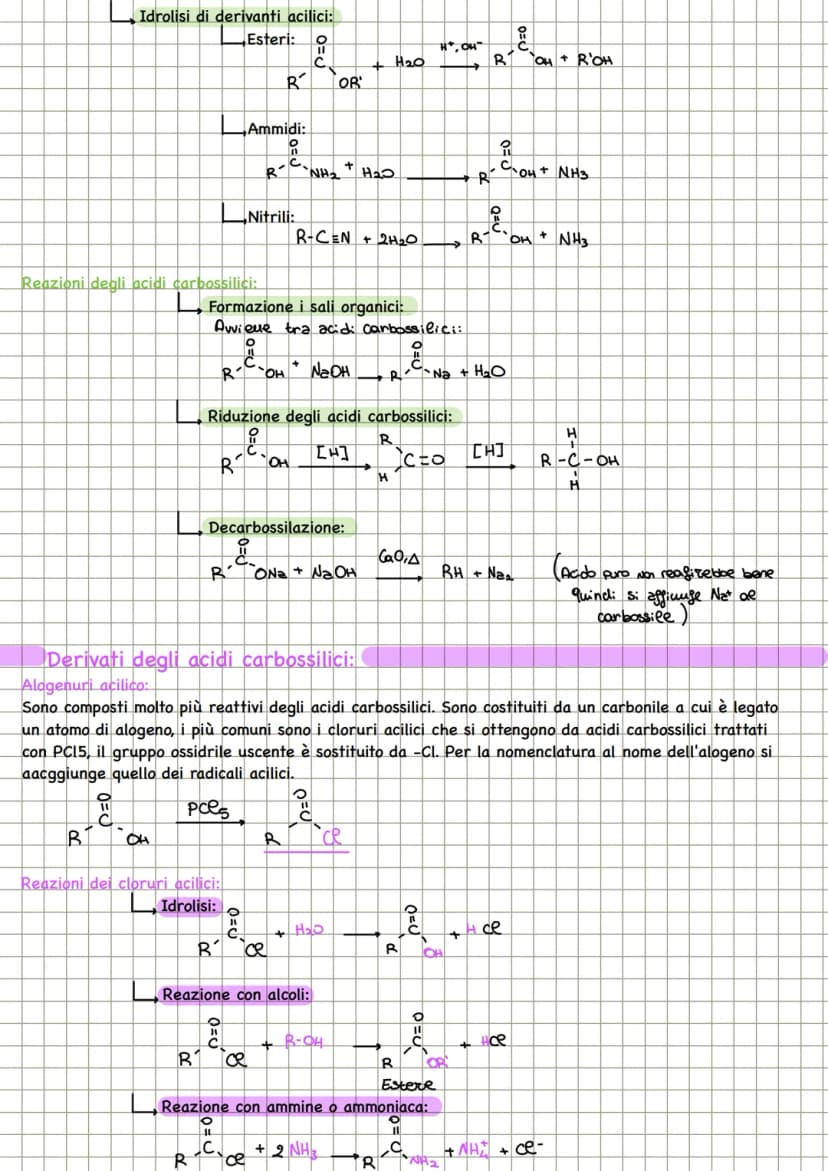 Idrolisi di derivanti acilici:
Esteri:
R-C(=O)-OR' + H2O → [H+, OH-] R-C(=O)-OH + R'OH
Ammidi:
R-C(=O)-NH2 + H2O → R-C(=O)-OH + NH3
Nitrili:
R-C≡N + 2H2O → R-C(=O)-OH + NH3
Reazioni degli acidi carbossilici:
Formazione i sali organici:
Avviene tra acidi carbossilici:
R-C(=O)-OH + NaOH → R-C(=O)-Na + H2O
Riduzione degli acidi carbossilici:
R-C(=O)-OH [H] → R H C=O [H] → R-C(H)(H)-OH
Decarbossilazione:
R-C(=O)-ONa + NaOH CaO,Δ → RH + Na2 (Acido puro non reagirebbe bene
quindi si aggiunge Na+ al
carbossile)
Derivati degli acidi carbossilici:
Alogenuri acilico:
Sono composti molto più reattivi degli acidi carbossilici. Sono costituiti da un carbonile a cui è legato
un atomo di alogeno, i più comuni sono i cloruri acilici che si ottengono da acidi carbossilici trattati
con PCl5, il gruppo ossidrile uscente è sostituito da -Cl. Per la nomenclatura al nome dell'alogeno si
aacggiunge quello dei radicali acilici.
R-C(=O)-OH PCl5 → R-C(=O)-Cl
Reazioni dei cloruri acilici:
Idrolisi:
R-C(=O)-Cl + H2O → R-C(=O)-OH + HCl
Reazione con alcoli:
R-C(=O)-Cl + R-OH → R-C(=O)-OR' + HCl
Estere
Reazione con ammine o ammoniaca:
R-C(=O)-Cl + 2 NH3 → R-C(=O)-NH2 + NH4+ + Cl-